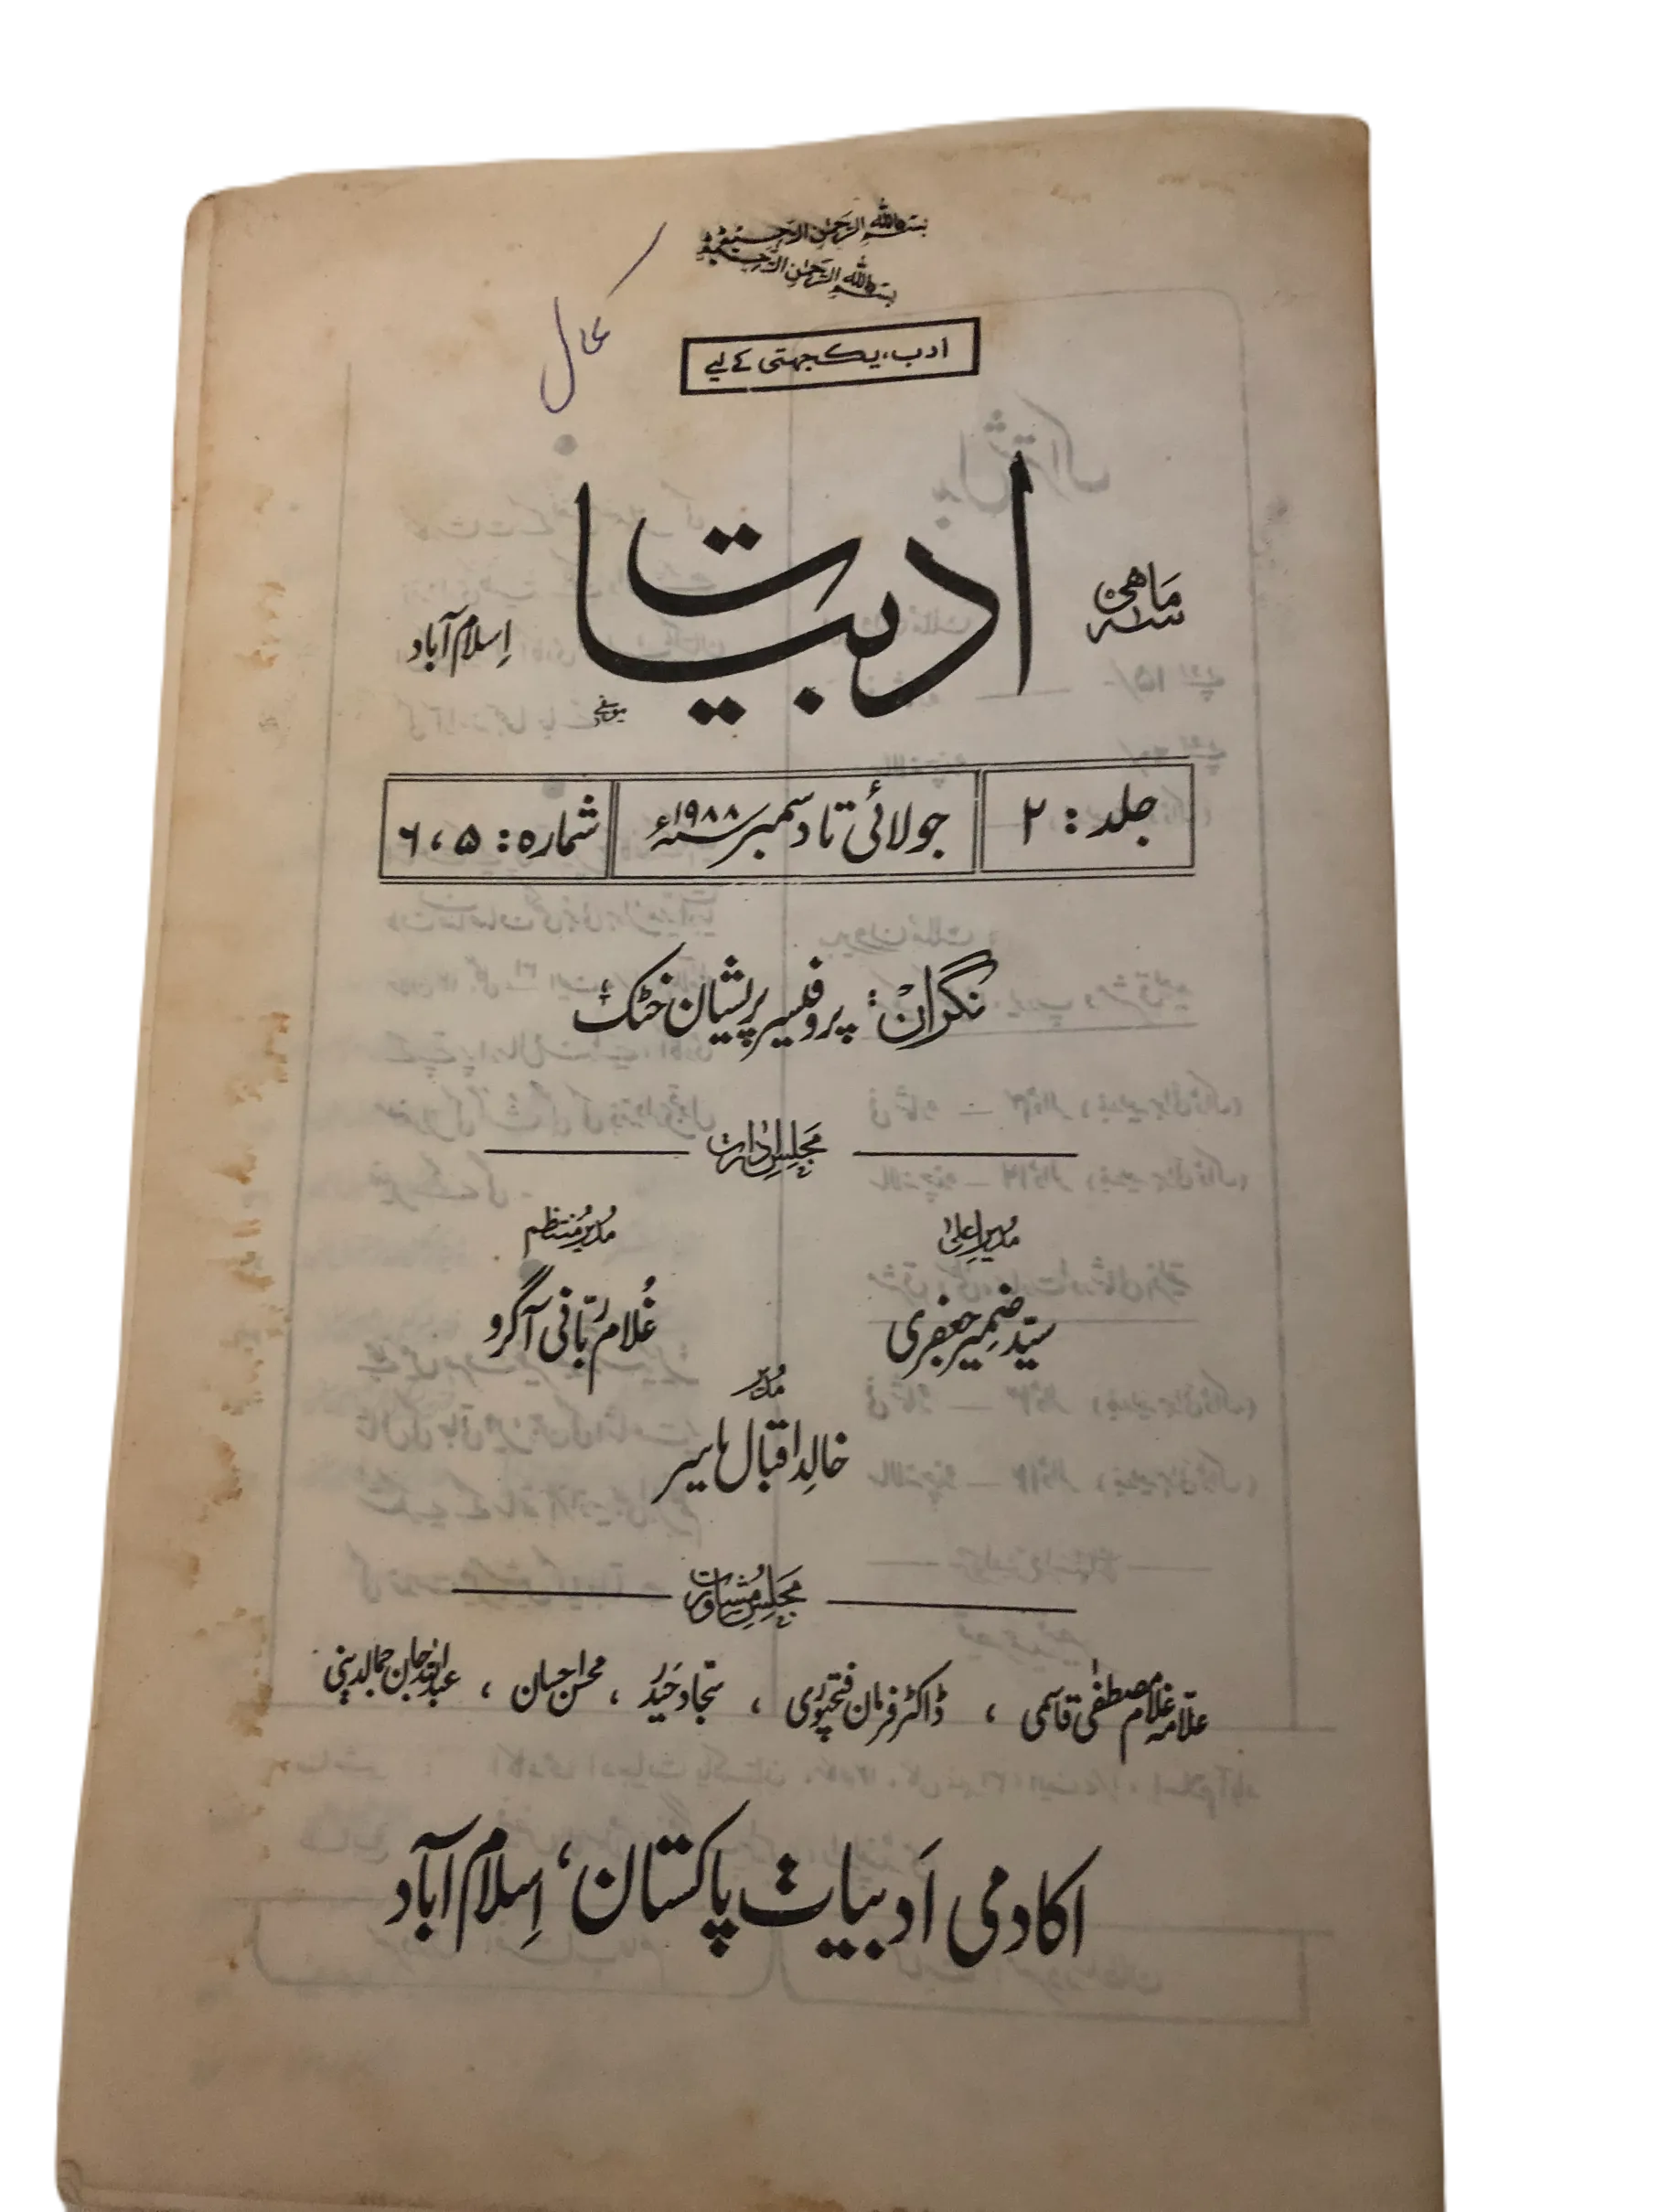 بسم الله الرحمن الرحیم
بسم الله الرحمن الرحیم
ادب، یک جہتی کے لیے
سہ ماہی
ادبیات
اسلام آباد
جلد: ۲
جولائی تا دسمبر ۱۹۸۸ء
شمارہ: ۵، ۶
نگران: پروفیسر پریشان خٹک
مجلسِ ادارت
مدیرِ اعلیٰ
مدیرِ منتظم
سیّد ضمیر جعفری
غلام ربّانی آگرو
مدیر
خالد اقبال یاسر
مجلسِ مشاورت
علّامہ غلام مصطفٰی قاسمی ، ڈاکٹر فرمان فتحپوری ، سجّاد حیدر ، محسن احسان ، عبداللہ جان جمالدینی
اکادمی ادبیات پاکستان، اسلام آباد